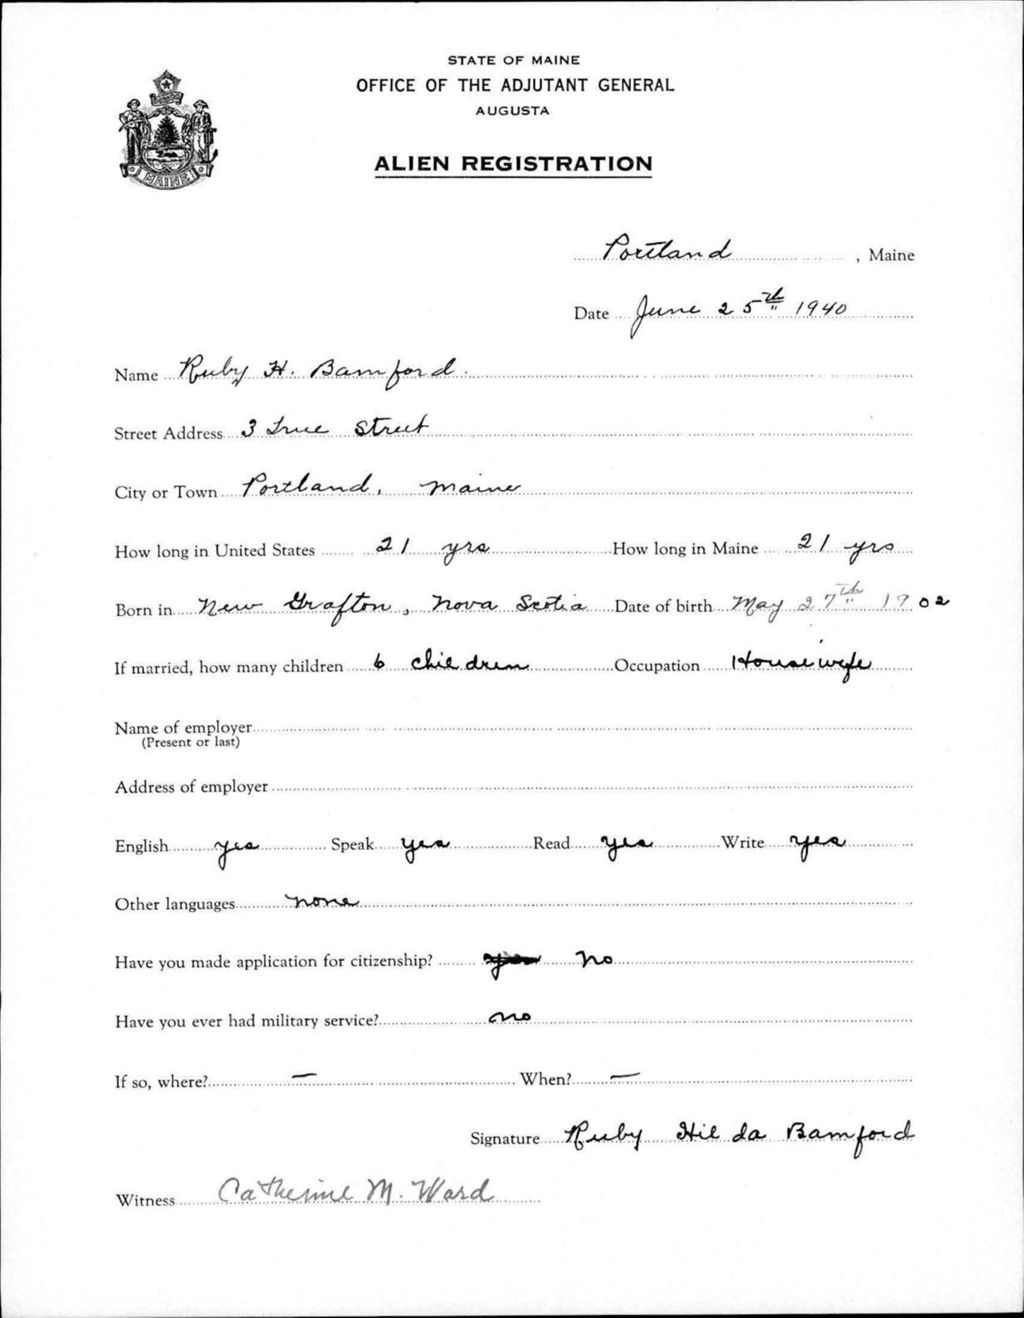 STATE OF MAINE
OFFICE OF THE ADJUTANT GENERAL
AUGUSTA
ALIEN REGISTRATION
MAINE
Portland, Maine
Date June 25th 1940
Name Ruby H. Bamford.
Street Address 3 True Street
City or Town Portland, Maine
How long in United States 21 yrs How long in Maine 21 yrs
Born in New Grafton, Nova Scotia Date of birth May 27th 1902
If married, how many children 6 children Occupation Housewife
Name of employer
(Present or last)
Address of employer
English yes Speak yes Read yes Write yes
Other languages none
Have you made application for citizenship? yes no
Have you ever had military service? no
If so, where? — When? —
Signature Ruby Hilda Bamford
Witness Catherine M. Ward